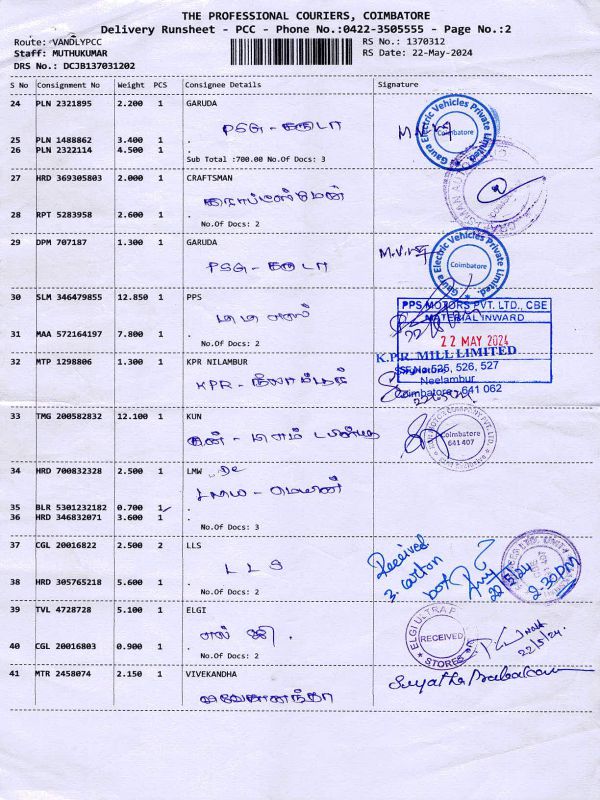 THE PROFESSIONAL COURIERS, COIMBATORE
Delivery Runsheet - PCC - Phone No.:0422-3505555 - Page No.:2
Route: VANDLYPCC
Staff: MUTHUKUMAR
DRS No.: DCJB137031202
RS No.: 1370312
RS Date: 22-May-2024
S No Consignment No Weight PCS Consignee Details Signature
24 PLN 2321895 2.200 1 GARUDA
PSG - கருடா
25 PLN 1488862 3.400 1 .
26 PLN 2322114 4.500 1 .
Sub Total :700.00 No.Of Docs: 3
Gaura Electric Vehicles Private Limited.
Coimbatore
27 HRD 369305803 2.000 1 CRAFTSMAN
28 RPT 5283958 2.600 1 .
No.Of Docs: 2
29 DPM 707187 1.300 1 GARUDA
PSG - கருடா
Gaura Electric Vehicles Private Limited.
Coimbatore
30 SLM 346479855 12.850 1 PPS
31 MAA 572164197 7.800 1 .
PPS MOTORS PVT. LTD., CBE
MATERIAL INWARD
22 MAY 2024
32 MTP 1298806 1.300 1 KPR NILAMBUR
KPR - நிலாம்பூர்
K.P.R. MILL LIMITED
SF.No: 525, 526, 527
Neelambur
Coimbatore - 641 062
33 TMG 200582832 12.100 1 KUN
Coimbatore
641 407
34 HRD 700832328 2.500 1 LMW
35 BLR 5301232182 0.700 1 .
36 HRD 346832071 3.600 1 .
No.Of Docs: 3
37 CGL 20016822 2.500 2 LLS
LLS
38 HRD 305765218 5.600 1 .
No.Of Docs: 2
Received
3. carton
box
22/5/24
2-30 PM
39 TVL 4728728 5.100 1 ELGI
எல் ஜி.
40 CGL 20016803 0.900 1 .
No.Of Docs: 2
ELGI ULTRA
RECEIVED
STORES
22/5/24.
41 MTR 2458074 2.150 1 VIVEKANDHA
விவேகானந்தா
Sugatha Prabakaran